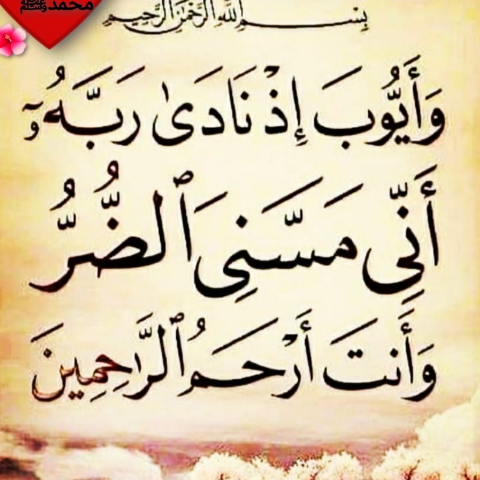 محمدﷺ
بِسْمِ اللَّهِ الرَّحْمَٰنِ الرَّحِيمِ
وَأَيُّوبَ إِذْ نَادَىٰ رَبَّهُۥٓ
أَنِّى مَسَّنِىَ ٱلضُّرُّ
وَأَنتَ أَرْحَمُ ٱلرَّٰحِمِينَ